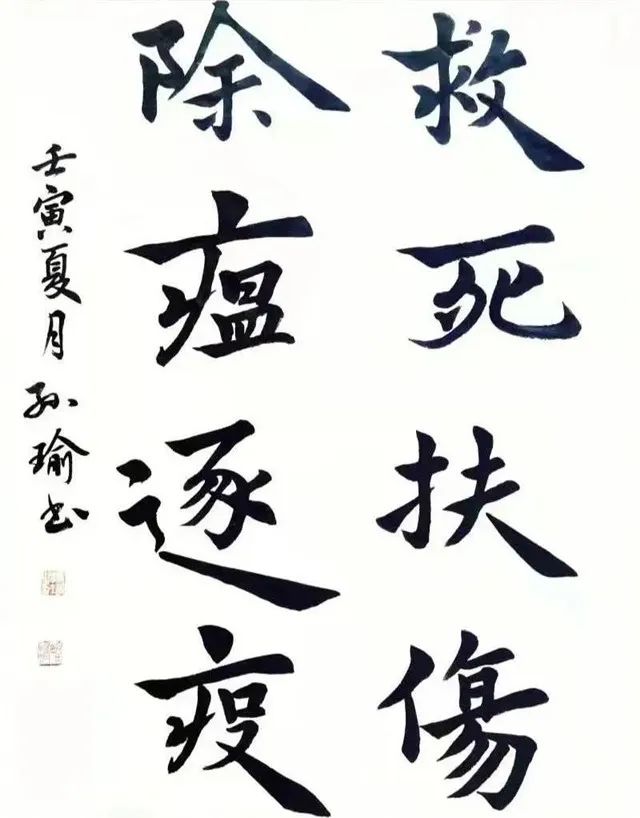 救死扶傷
除瘟逐疫
壬寅夏月孙瑜书